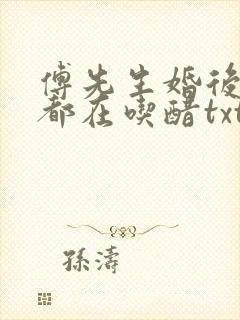 傅先生婚後
都在喫醋txt
孫濤